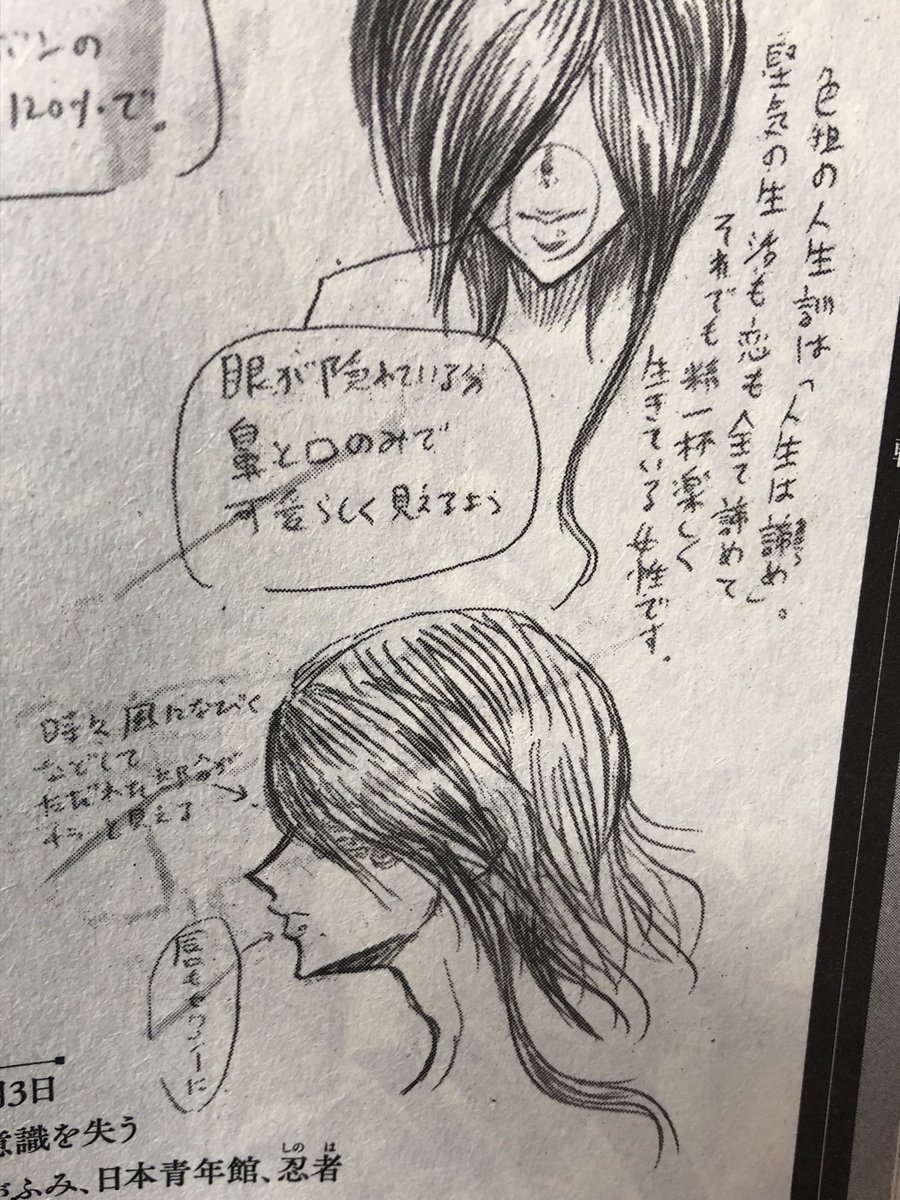 ボンの
120%で。
色姐の人生訓は「人生は諦め」。
堅気の生活も恋も全て諦めて
それでも精一杯楽しく
生きている女性です。
眼が隠れている分
鼻と口のみで
可愛らしく見えるよう
時々風になびく
などして
ただれた瞼が
チラっと見える
唇もセクシーに
月3日
意識を失う
ふみ、日本青年館、忍者
しのは